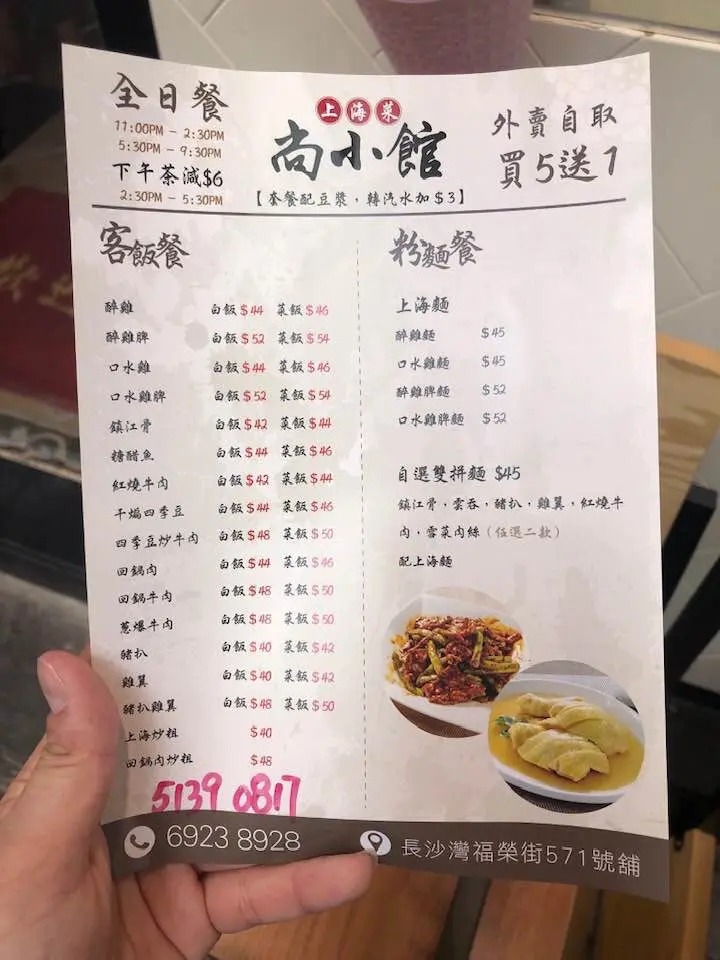 全日餐
11:00PM - 2:30PM
5:30PM - 9:30PM
下午茶減$6
2:30PM - 5:30PM
上海菜
尚小館
【套餐配豆漿，轉汽水加$3】
外賣自取
買5送1
客飯餐
醉雞 白飯$44 菜飯$46
醉雞脾 白飯$52 菜飯$54
口水雞 白飯$44 菜飯$46
口水雞脾 白飯$52 菜飯$54
鎮江骨 白飯$42 菜飯$44
糖醋魚 白飯$44 菜飯$46
紅燒牛肉 白飯$42 菜飯$44
干煸四季豆 白飯$44 菜飯$46
四季豆炒牛肉 白飯$48 菜飯$50
回鍋肉 白飯$44 菜飯$46
回鍋牛肉 白飯$48 菜飯$50
蔥爆牛肉 白飯$48 菜飯$50
豬扒 白飯$40 菜飯$42
雞翼 白飯$40 菜飯$42
豬扒雞翼 白飯$48 菜飯$50
上海炒粗 $40
回鍋肉炒粗 $48
粉麵餐
上海麵
醉雞麵 $45
口水雞麵 $45
醉雞脾麵 $52
口水雞脾麵 $52
自選雙拼麵 $45
鎮江骨，雲吞，豬扒，雞翼，紅燒牛
肉，雪菜肉絲（任選二款）
配上海麵
5139 0817
6923 8928
長沙灣福榮街571號舖